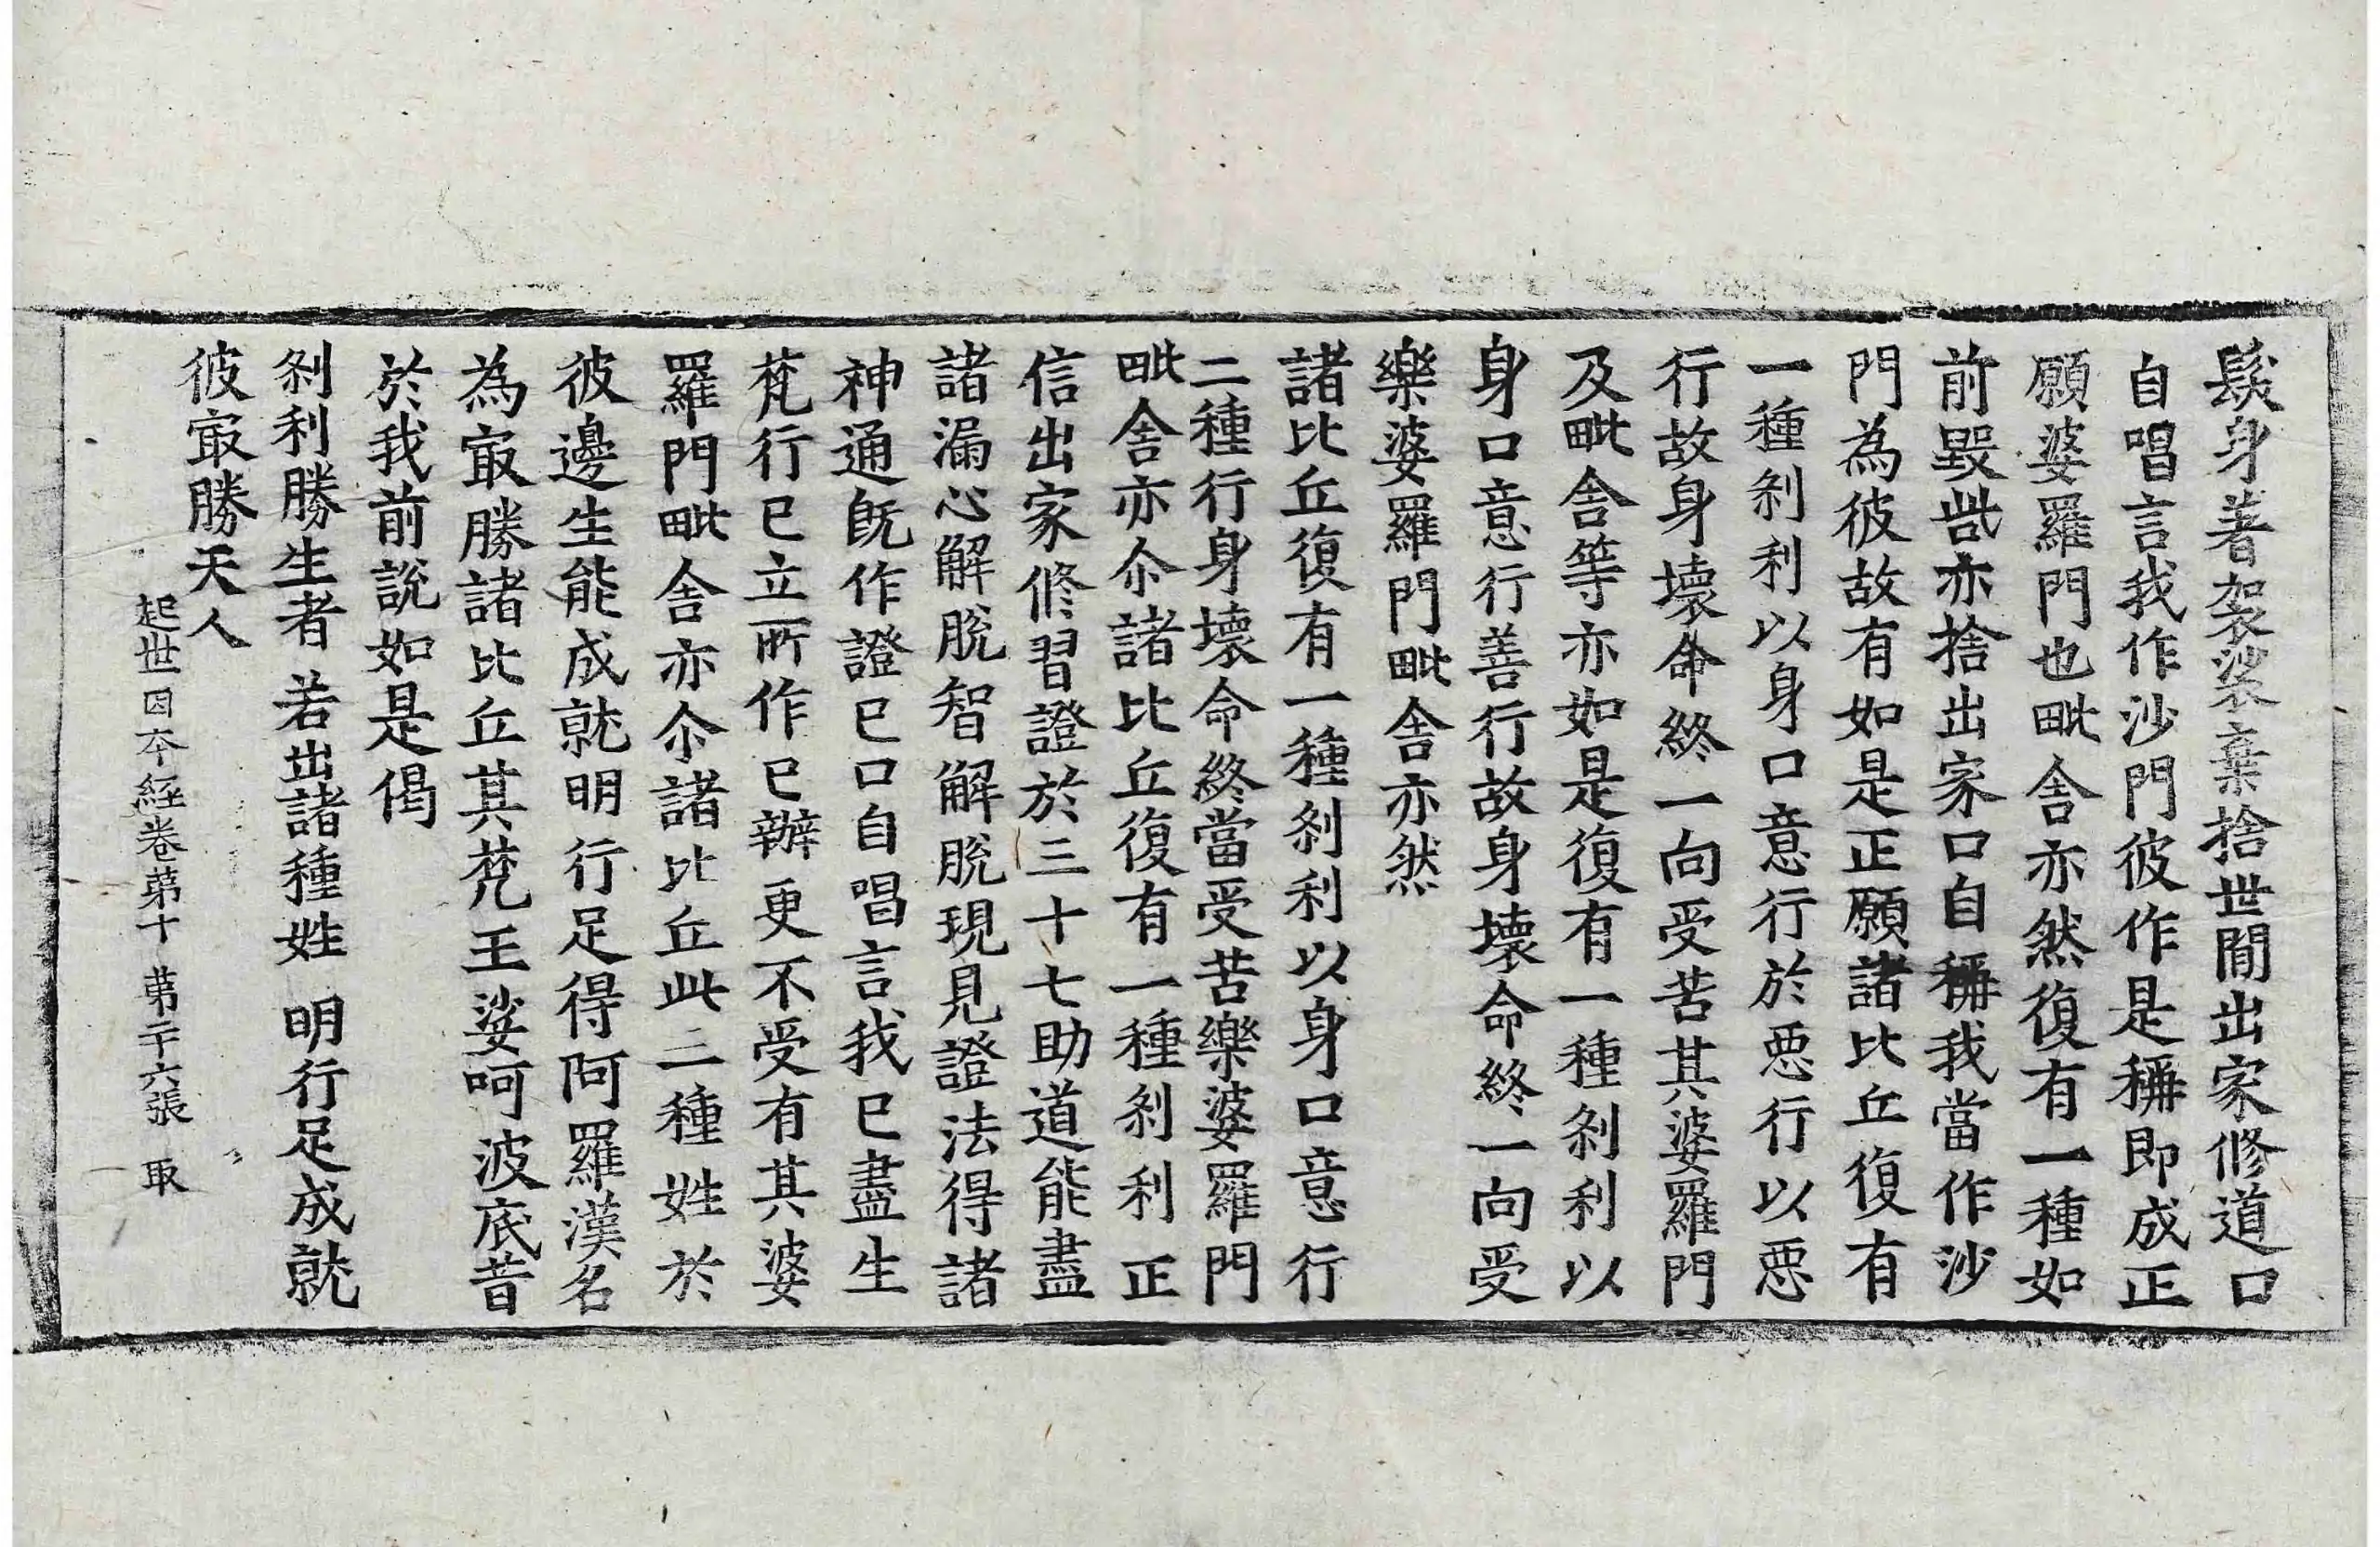 鬚身著袈裟棄捨世閒出家修道口
自唱言我作沙門彼作是稱即成正
願婆羅門也毗舍亦然復有一種如
前毀呰亦捨出家口自稱我當作沙
門為彼故有如是正願諸比丘復有
一種刹利以身口意行於惡行以惡
行故身壞命終一向受苦其婆羅門
及毗舍等亦如是復有一種刹利以
身口意行善行故身壞命終一向受
樂婆羅門毗舍亦然
諸比丘復有一種刹利以身口意行
二種行身壞命終當受苦樂婆羅門
毗舍亦尒諸比丘復有一種刹利正
信出家修習證於三十七助道能盡
諸漏心解脫智解脫現見證法得諸
神通旣作證已口自唱言我已盡生
梵行已立所作已辦更不受有其婆
羅門毗舍亦尒諸比丘此二種姓於
彼邊生能成就明行足得阿羅漢名
為㝡勝諸比丘其梵王娑呵波底昔
於我前說如是偈
刹利勝生者 若出諸種姓 明行足成就
彼㝡勝天人
起世因本經卷苐十 苐二十六張 取